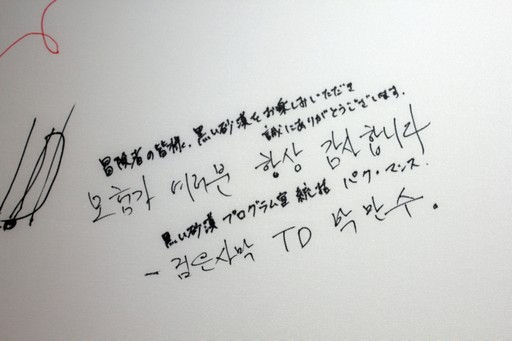 冒険者の皆様、黒い砂漠をお楽しみいただき
誠にありがとうございます。
모험가 여러분 항상 감사합니다
黒い砂漠 プログラム室 総括 パク・マンス.
- 검은사막 TD 박만수.